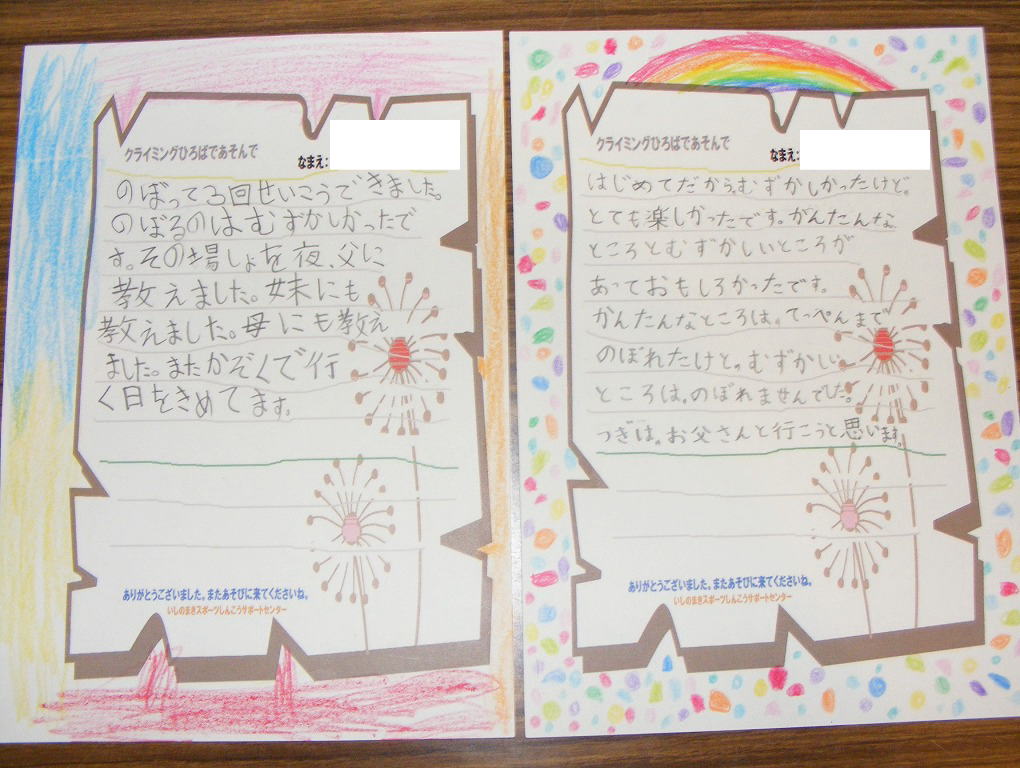 クライミングひろばであそんで
なまえ:
のぼって3回せいこうできました。
のぼるのはむずかしかったで
す。その場しょを夜、父に
教えました。妹にも
教えました。母にも教え
ました。またかぞくで行
く日をきめてます。
ありがとうございました。またあそびに来てくださいね。
いしのまきスポーツしんこうサポートセンター
クライミングひろばであそんで
なまえ:
はじめてだからむずかしかったけど。
とても楽しかったです。がんたんな
ところとむずかしいところが
あっておもしろかったです。
かんたんなところは。てっぺんまで
のぼれたけど。むずかしい
ところは。のぼれませんでした。
つぎは。お父さんと行こうと思います。
ありがとうございました。またあそびに来てくださいね。
いしのまきスポーツしんこうサポートセンター